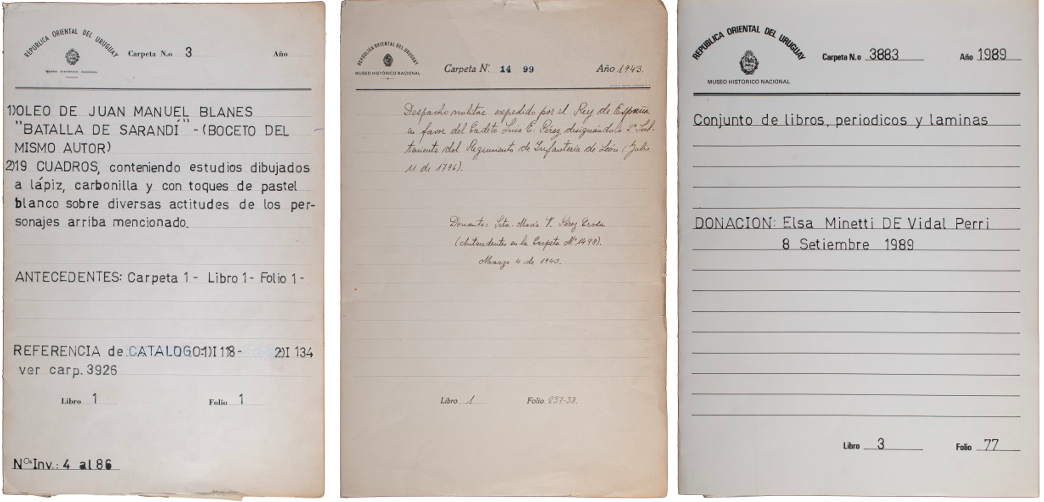 REPUBLICA ORIENTAL DEL URUGUAY
MUSEO HISTORICO NACIONAL
Carpeta N.o 3 Año
1)OLEO DE JUAN MANUEL BLANES
"BATALLA DE SARANDÍ" - (BOCETO DEL
MISMO AUTOR)
2)19 CUADROS, conteniendo estudios dibujados
a lápiz, carbonilla y con toques de pastel
blanco sobre diversas actitudes de los per-
sonajes arriba mencionado.
ANTECEDENTES: Carpeta 1 - Libro 1 - Folio 1 -
REFERENCIA de CATALOGO:1)I 118 - 2)I 134
ver carp. 3926
Libro 1 Folio 1
Nos Inv.: 4 al 86
REPUBLICA ORIENTAL DEL URUGUAY
MUSEO HISTORICO NACIONAL
Carpeta No. 14 99 Año 1943.
Despacho militar expedido por el Rey de España
en favor del Cadete Luis E. Pérez designándolo 2o Sub-
teniente del Regimiento de Infantería de León (Julio
11 de 1796).
Donante: Srta. María V. Pérez
(Antecedentes en la Carpeta No 1498).
Marzo 4 de 1943.
Libro 1 Folio 237-38.
REPUBLICA ORIENTAL DEL URUGUAY
MUSEO HISTORICO NACIONAL
Carpeta N.o 3883 Año 1989
Conjunto de libros, periodicos y laminas
DONACION: Elsa Minetti DE Vidal Perri
8 Setiembre 1989
Libro 3 Folio 77